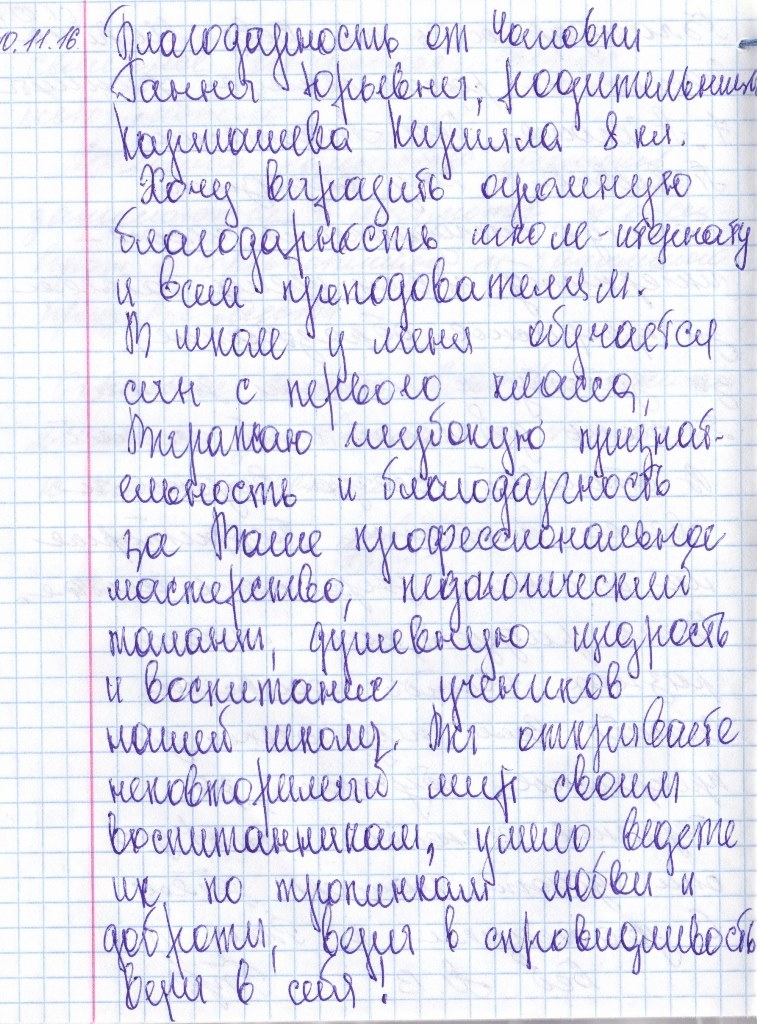 0.11.16 Благодарность от Чаловки
Ганны Юрьевны, родительницы
Карташева Кирилла 8 кл.
Хочу выразить огромную
благодарность школе-итернату
и всем преподователям.
В школе у меня обучается
сын с первого класса,
Выражаю глубокую признат-
ельность и благодарность
за Ваше профессиональное
мастерство, педагогический
талант, душевную щедрость
и воспитание учеников
нашей школы. Вы открываете
неповторимый мир своим
воспитанникам, умело ведете
их по тропинкам любви и
доброты, веры в справидливость
веры в себя!